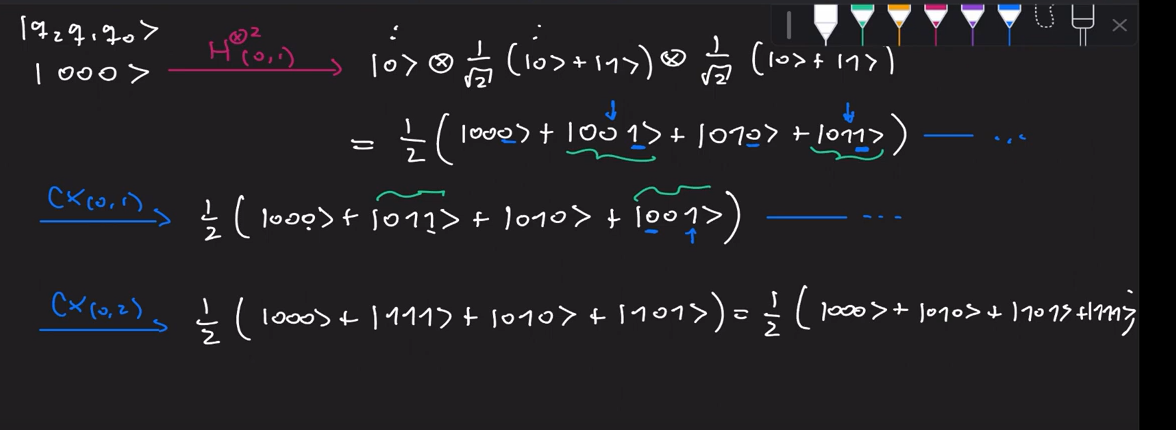 |q₂q₁q₀>
|000> H^⊗2_(0,1) |0> ⊗ 1/√2 (|0> + |1>) ⊗ 1/√2 (|0> + |1>)
= 1/2 (|000> + |001> + |010> + |011>) ...
CX(0,1) 1/2 (|000> + |011> + |010> + |001>) ---
CX(0,2) 1/2 (|000> + |111> + |010> + |101>) = 1/2 (|000> + |010> + |101> + |111>